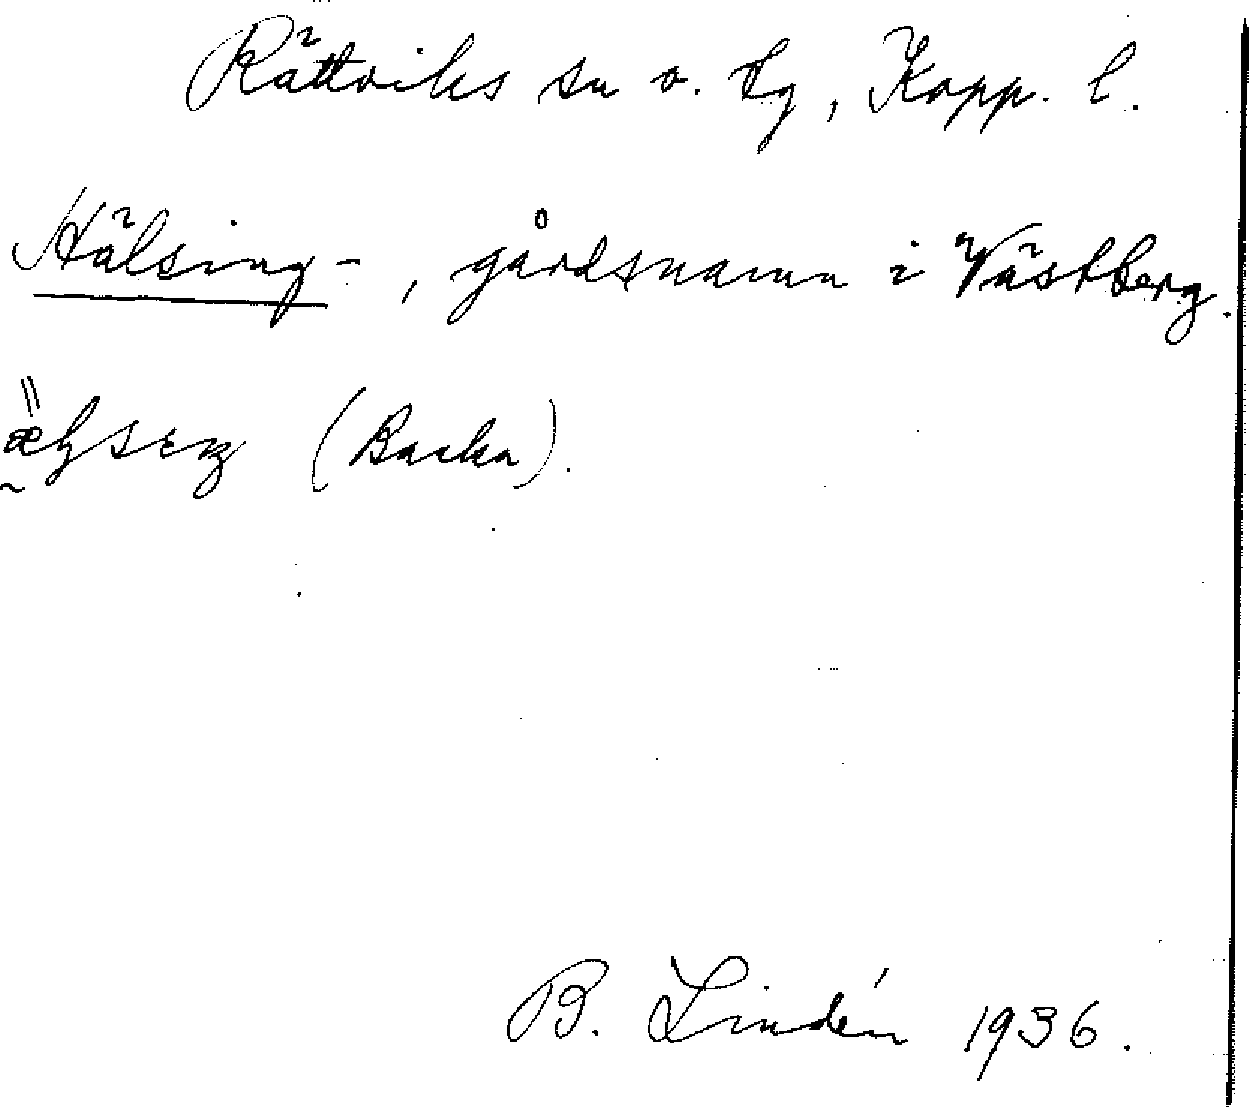 Rättviks sn o. tg, Kopp. l.
Hälsing-, gårdsnamn i Västberg.
(Backa).
B. Lindén 1936.